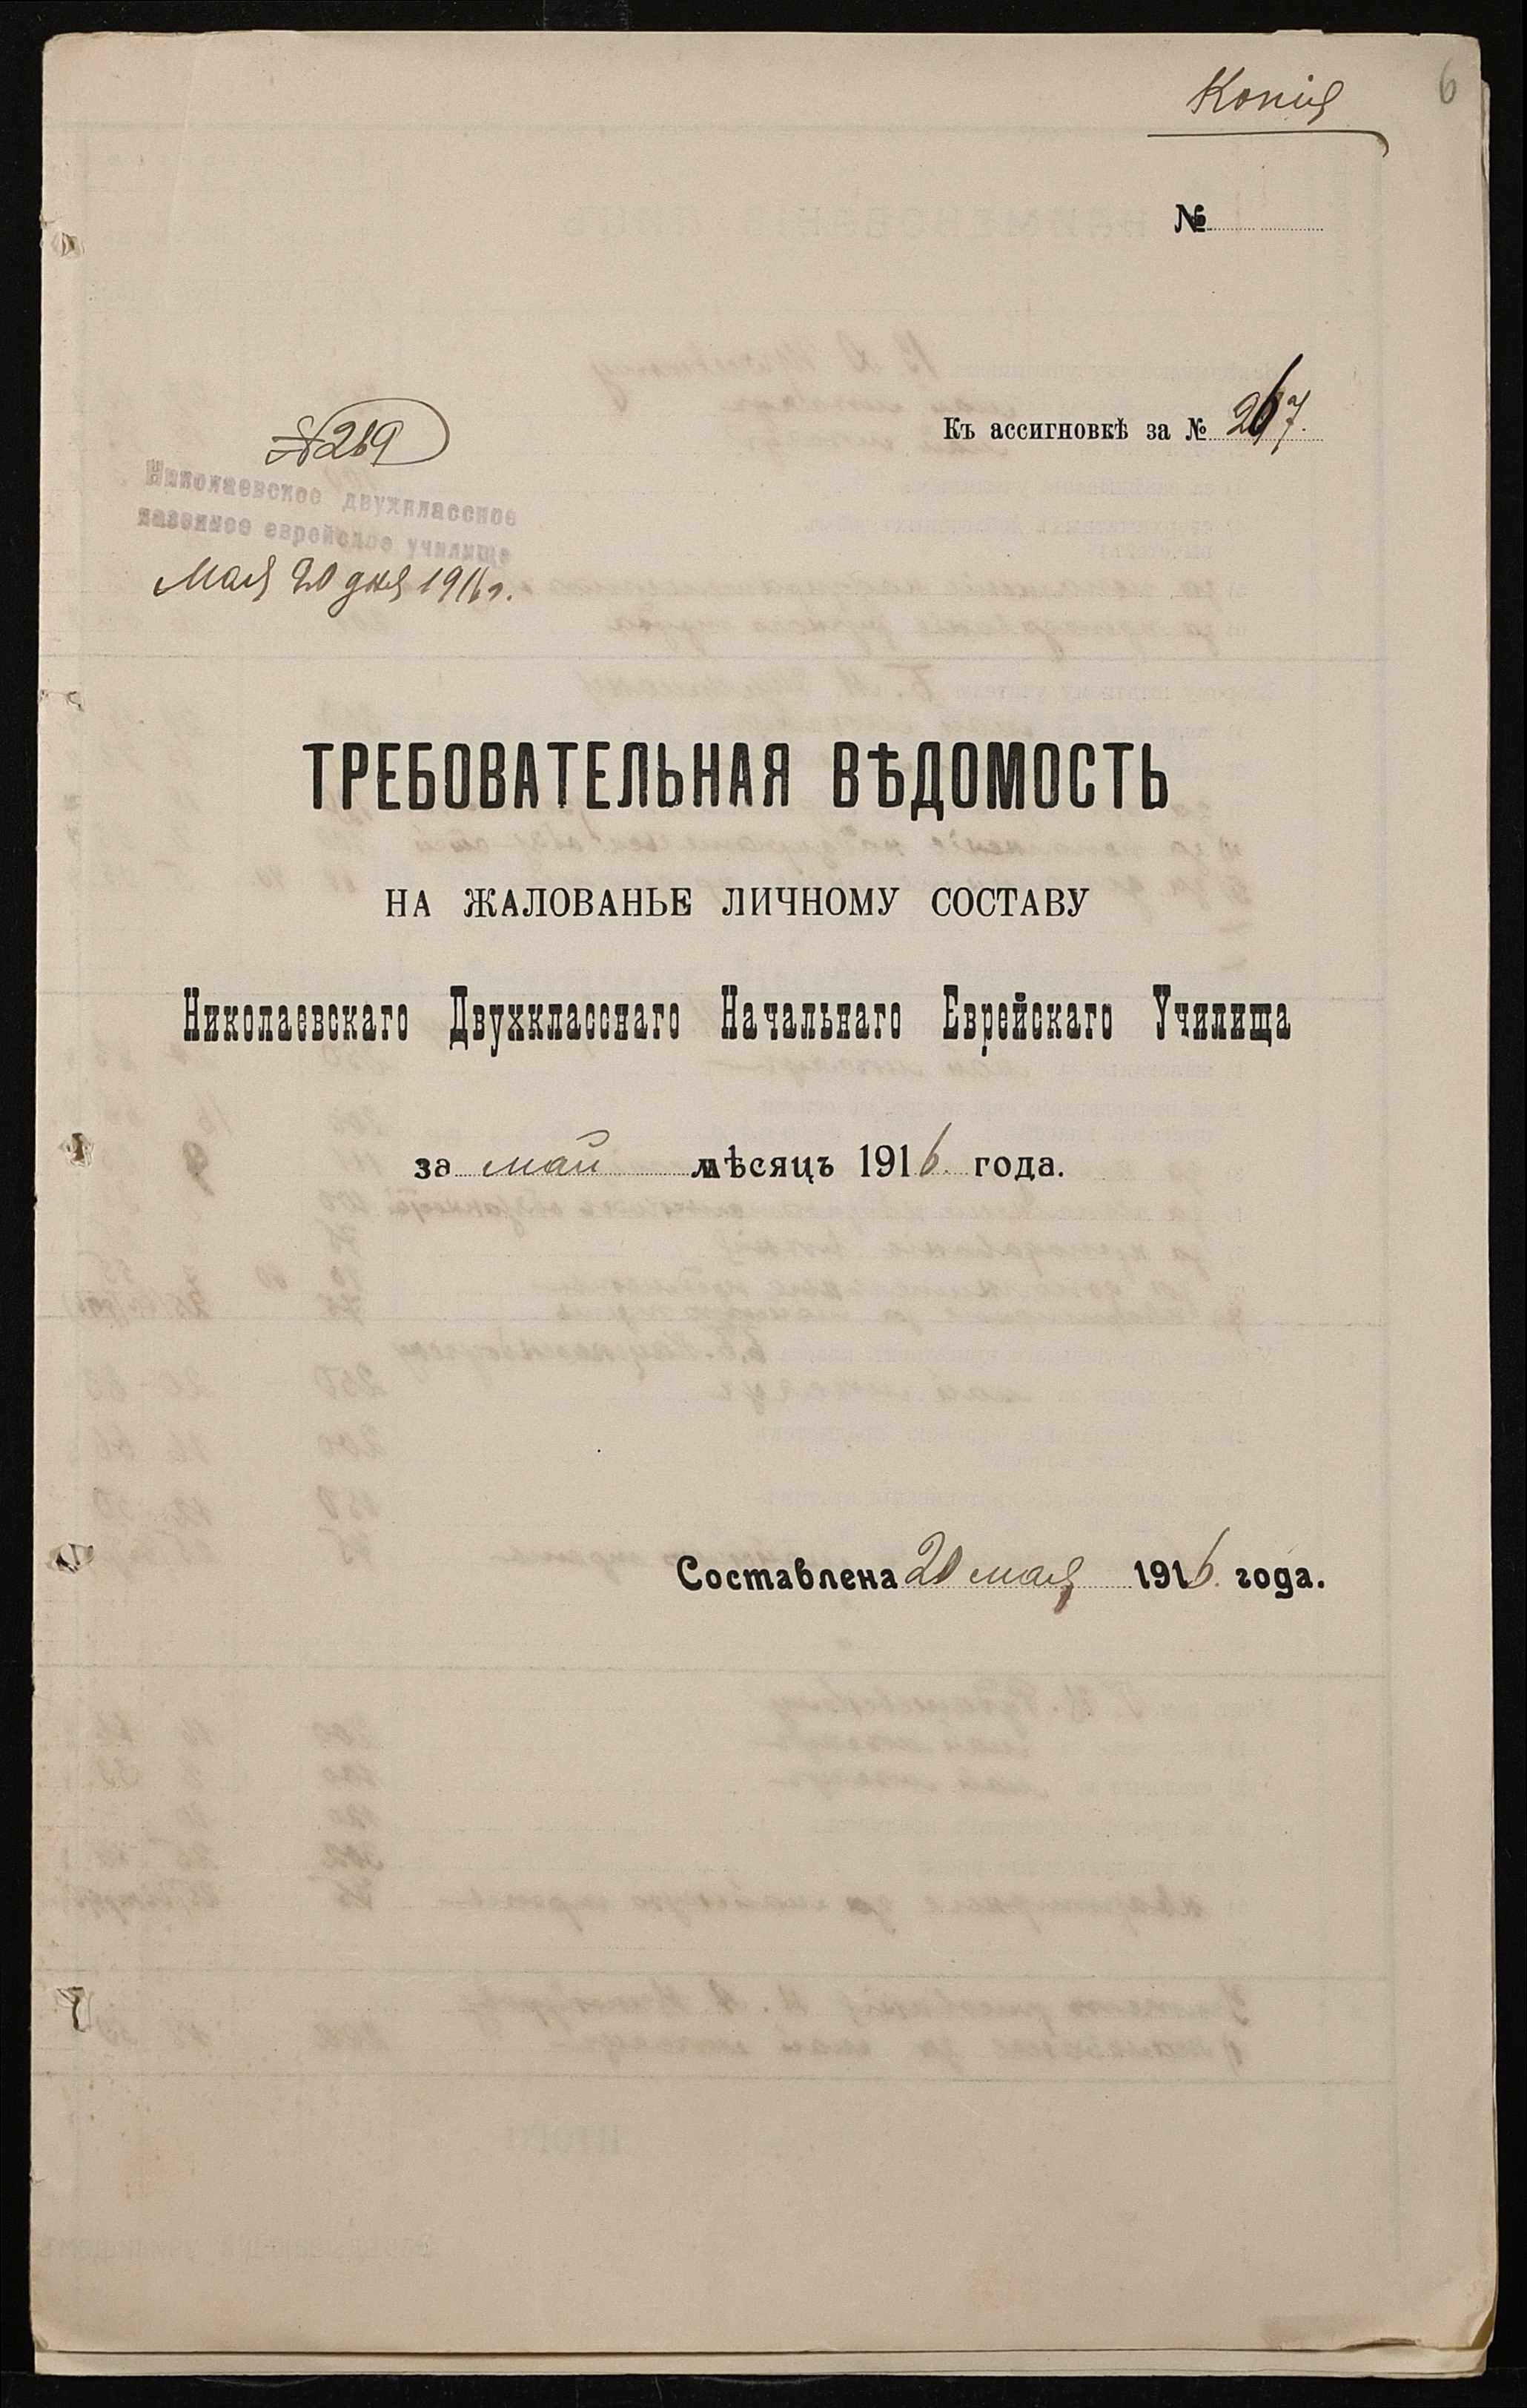 Копія
6
№
Къ ассигновкѣ за № 267.
№ 289
Николаевское двухклассное
казенное еврейское училище
Мая 20 дня 1916 г.
ТРЕБОВАТЕЛЬНАЯ ВѢДОМОСТЬ
НА ЖАЛОВАНЬЕ ЛИЧНОМУ СОСТАВУ
Николаевскаго Двухкласснаго Начальнаго Еврейскаго Училища
за май мѣсяцъ 1916. года.
Составлена 20 мая 1916. года.